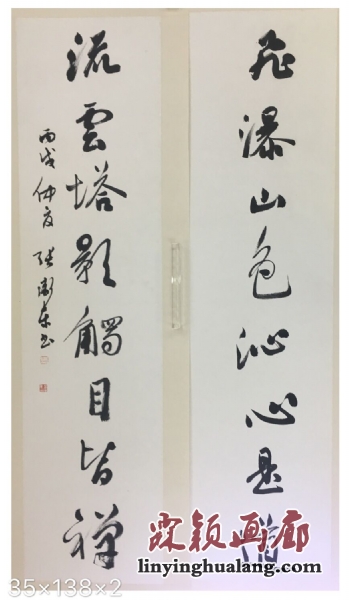 飛瀑山色沁心是
流雲塔影觸目皆禪
丙戌仲夏 張衛東书
霖颖画廊
linyinghualang.com
35×138×2